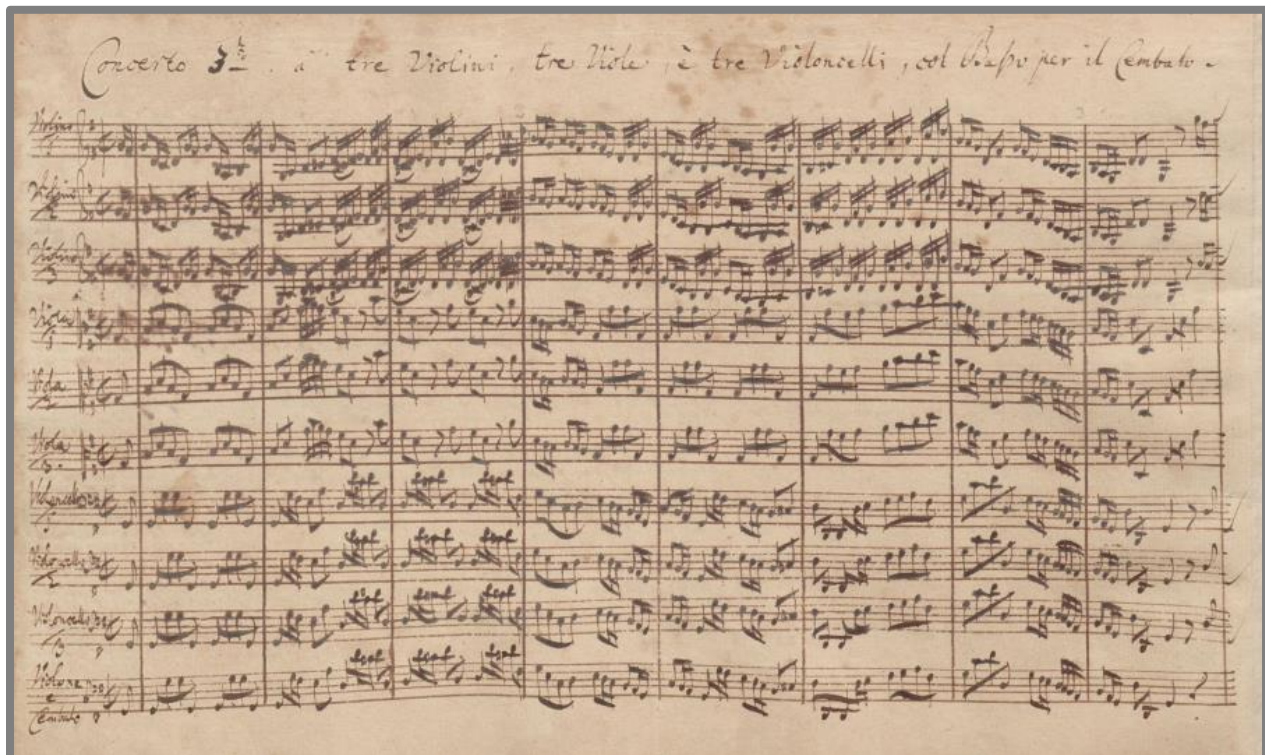 Concerto 3ᶻᵒ. a tre Violini, tre Viole, è tre Violoncelli, col Basso per il Cembalo.
Violino 1
Violino 2
Violino 3
Viola 1
Viola 2
Viola 3
Violoncello 1
Violoncello 2
Violoncello 3
Violone
e
Cembalo